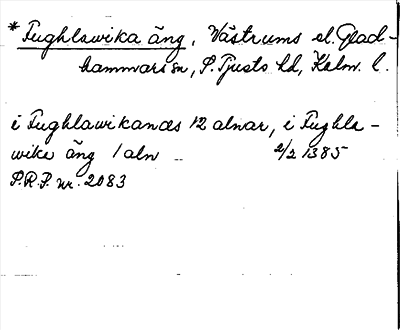 * Fughlawika äng, Västrums el. Glad-
hammars sn, S. Tjusts hd, Kalm. l.
i Fughlawikanæs 12 alnar, i Fughla-
wika äng 1 aln 2/2 1385
S.R.P. nr. 2083